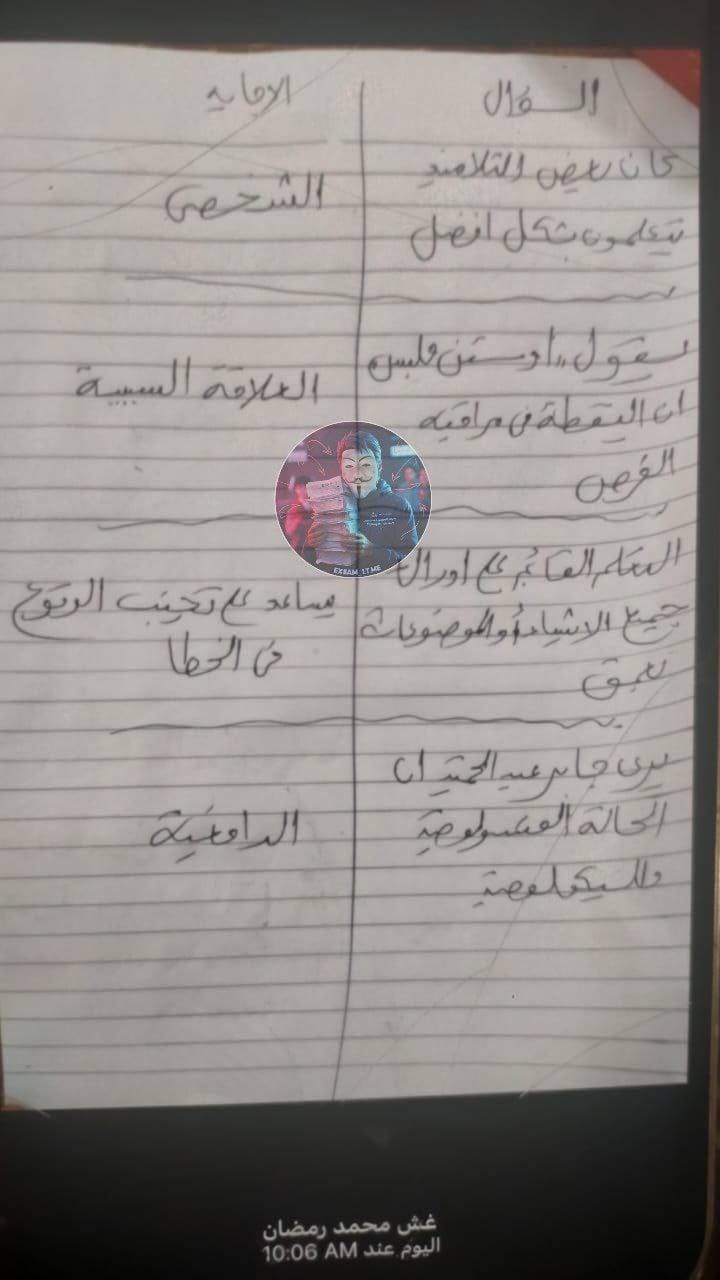 السؤال
الاجابه
كان بعض التلاميذ
يتعلمون بشكل افضل
الشخصى
يقول
ان اليقظة فى مراقبه
الفرص
العلاقة السببية
EXEAM 1.T.ME
التعلم القائم على ادراك
جميع الاشياء أو الموضوعات
بعمق
يساعد على تجنب الوقوع
فى الخطا
يرى جابر عبد الحميد ان
الحالة الفسيولوجية
والسيكولوجية
الدافعية
غش محمد رمضان
اليوم عند 10:06 AM